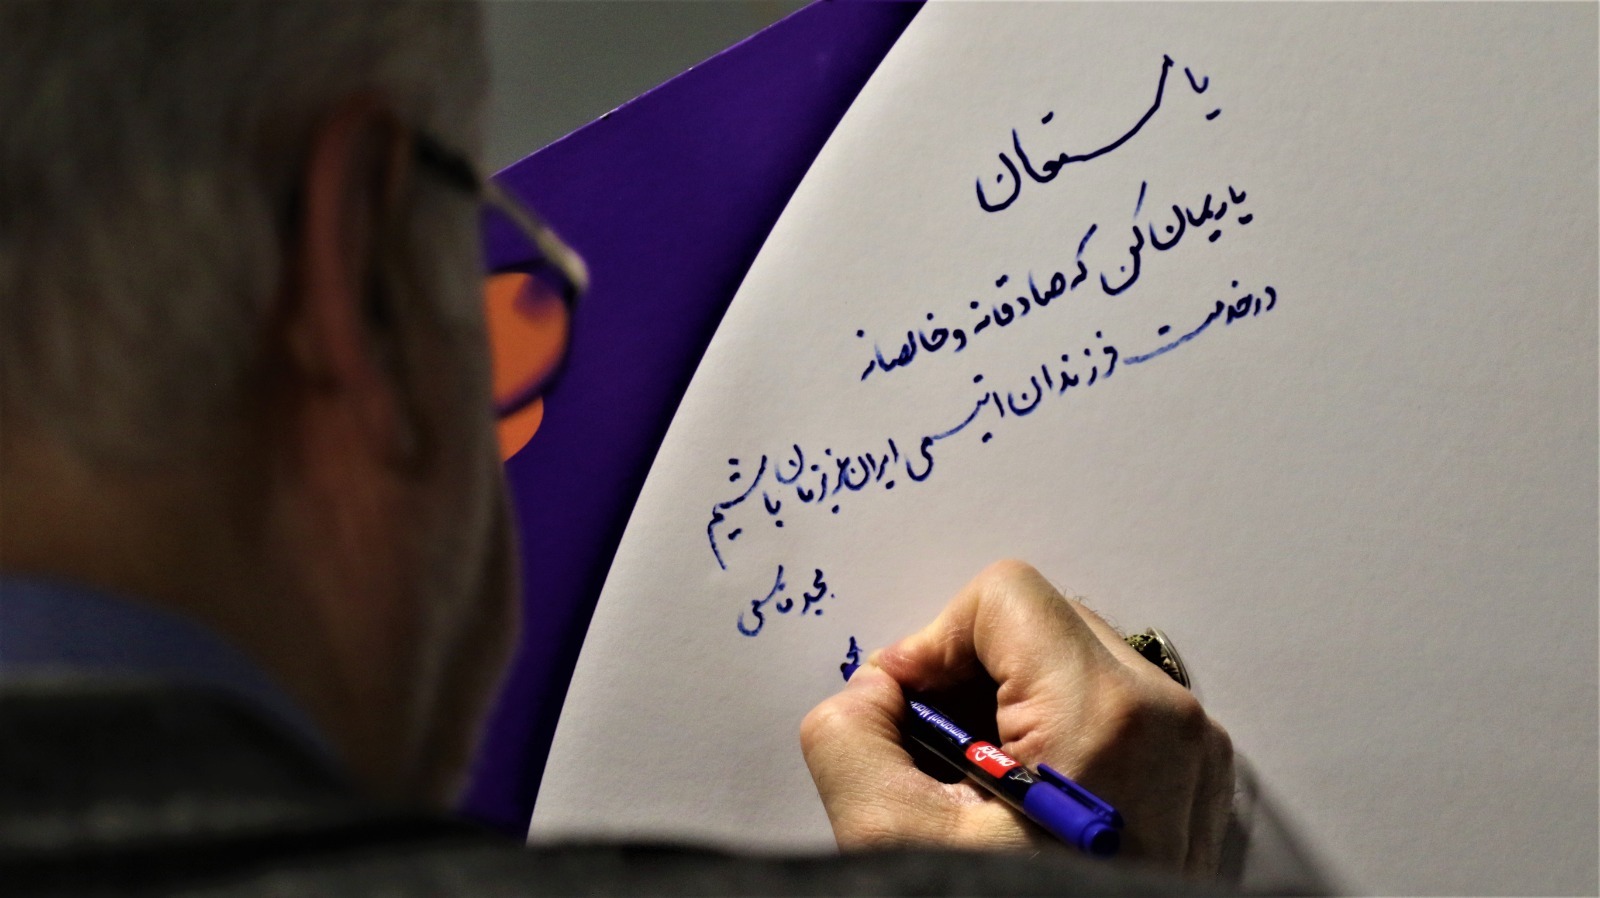 یا مستعان
یاریمان کن که صادقانه و خالصانه
در خدمت فرزندان اتیسمی ایران عزیزمان باشیم
مجید قاسمی
Permanent Mark
OWNER